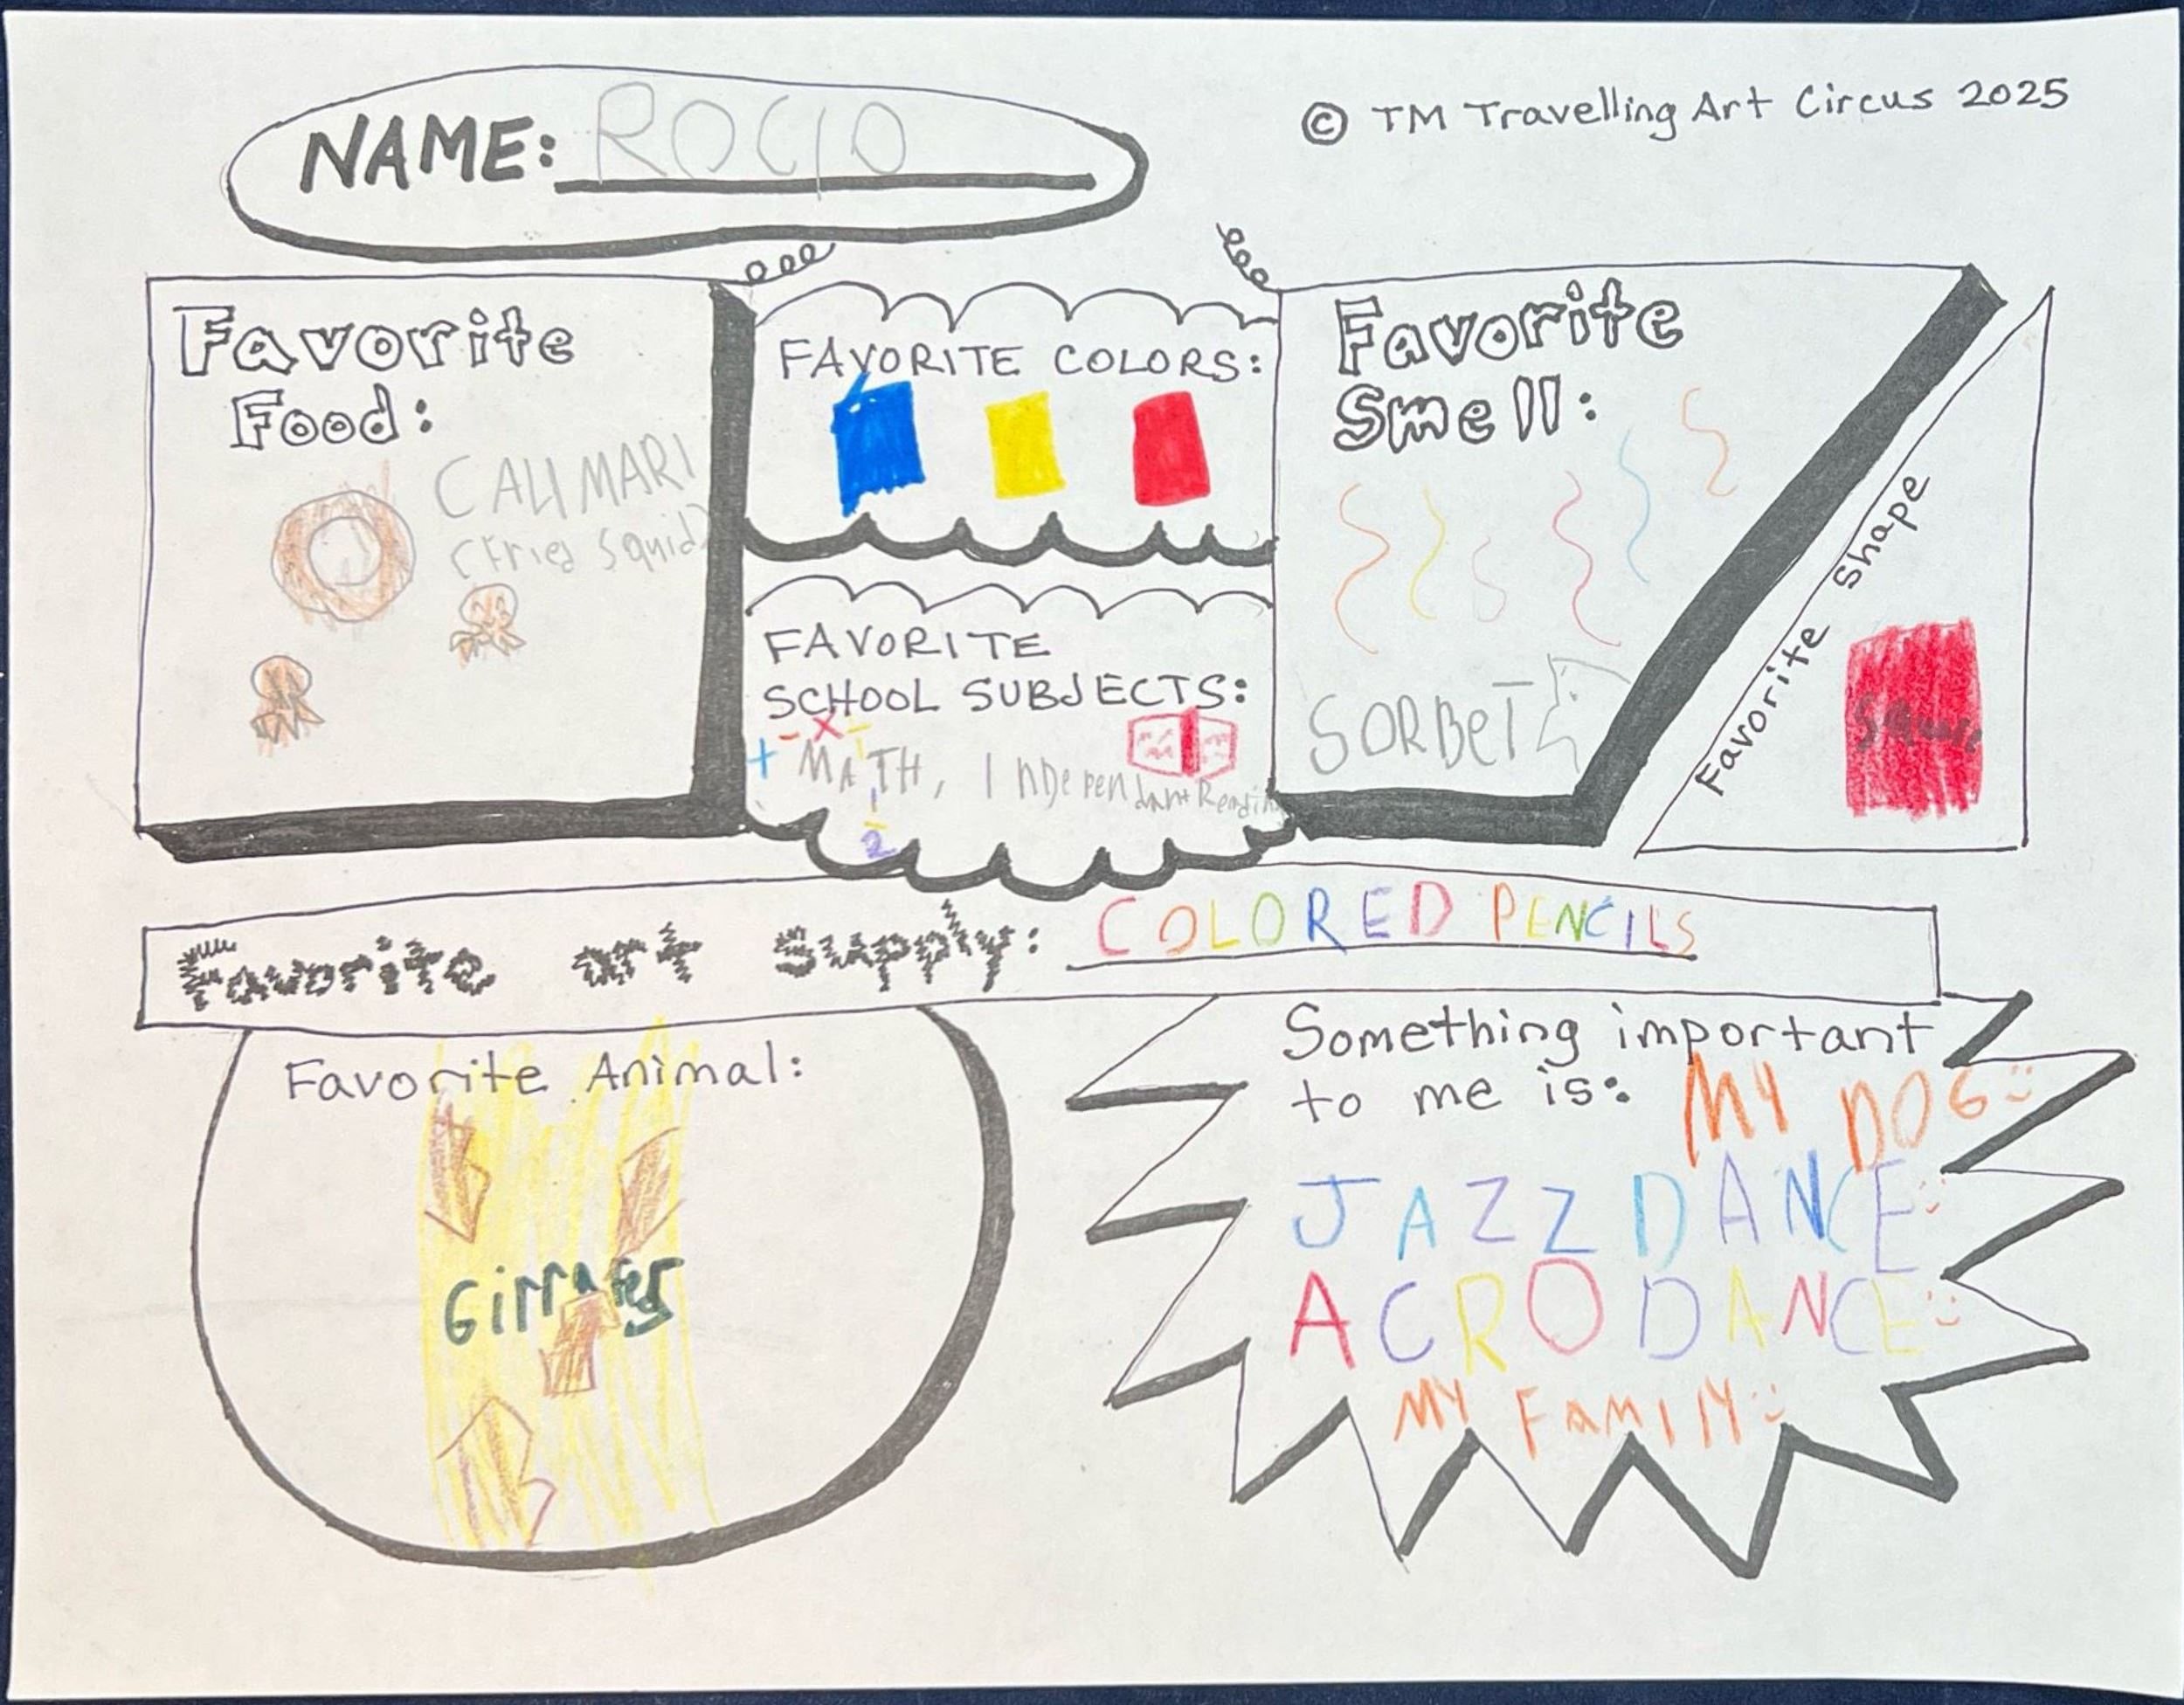 NAME: ROCIO
© TM Travelling Art Circus 2025
Favorite
Food:
CALIMARI
(Fried Squid)
FAVORITE COLORS:
FAVORITE
SCHOOL SUBJECTS:
+ - × -
MATH, INDependant Reading
1
2
Favorite
Smell:
SORBET
Favorite Shape
Square
Favorite art Supply: COLORED PENCILS
Favorite Animal:
Girrafes
Something important
to me is: MY DOG
JAZZ DANCE
ACRO DANCE
MY FAMILY